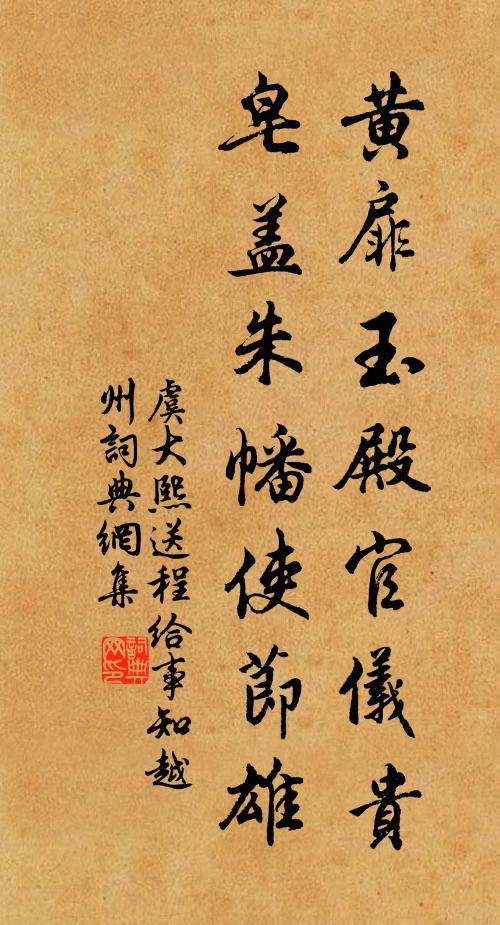 黄扉玉殿官儀貴
皂盖朱幡使節雄
虞大熙送程給事知越
州詞典網集
詞典网印